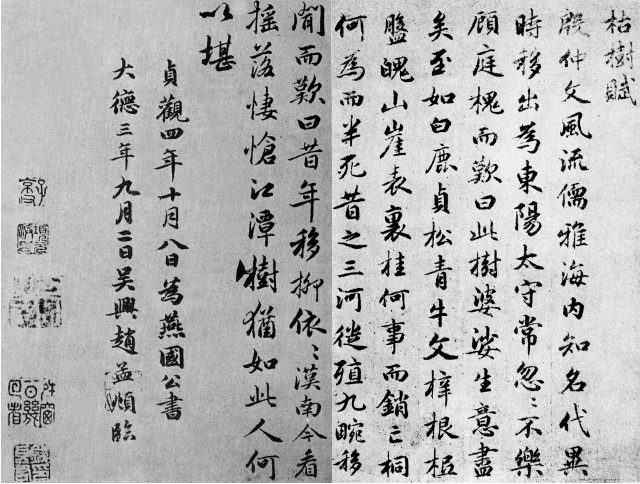 枯樹賦
殷仲文風流儒雅海內知名代異
時移出為東陽太守常忽〻不樂
顧庭槐而歎曰此樹婆娑生意盡
矣至如白鹿貞松青牛文梓根柢
盤魄山崖表裏桂何事而銷亡桐
何為而半死昔之三河徙殖九畹移
聞而歎曰昔年移柳依〻漢南今看
搖落悽愴江潭樹猶如此人何
以堪
貞觀四年十月八日為燕國公書
大德三年九月二日吳興趙孟頫臨